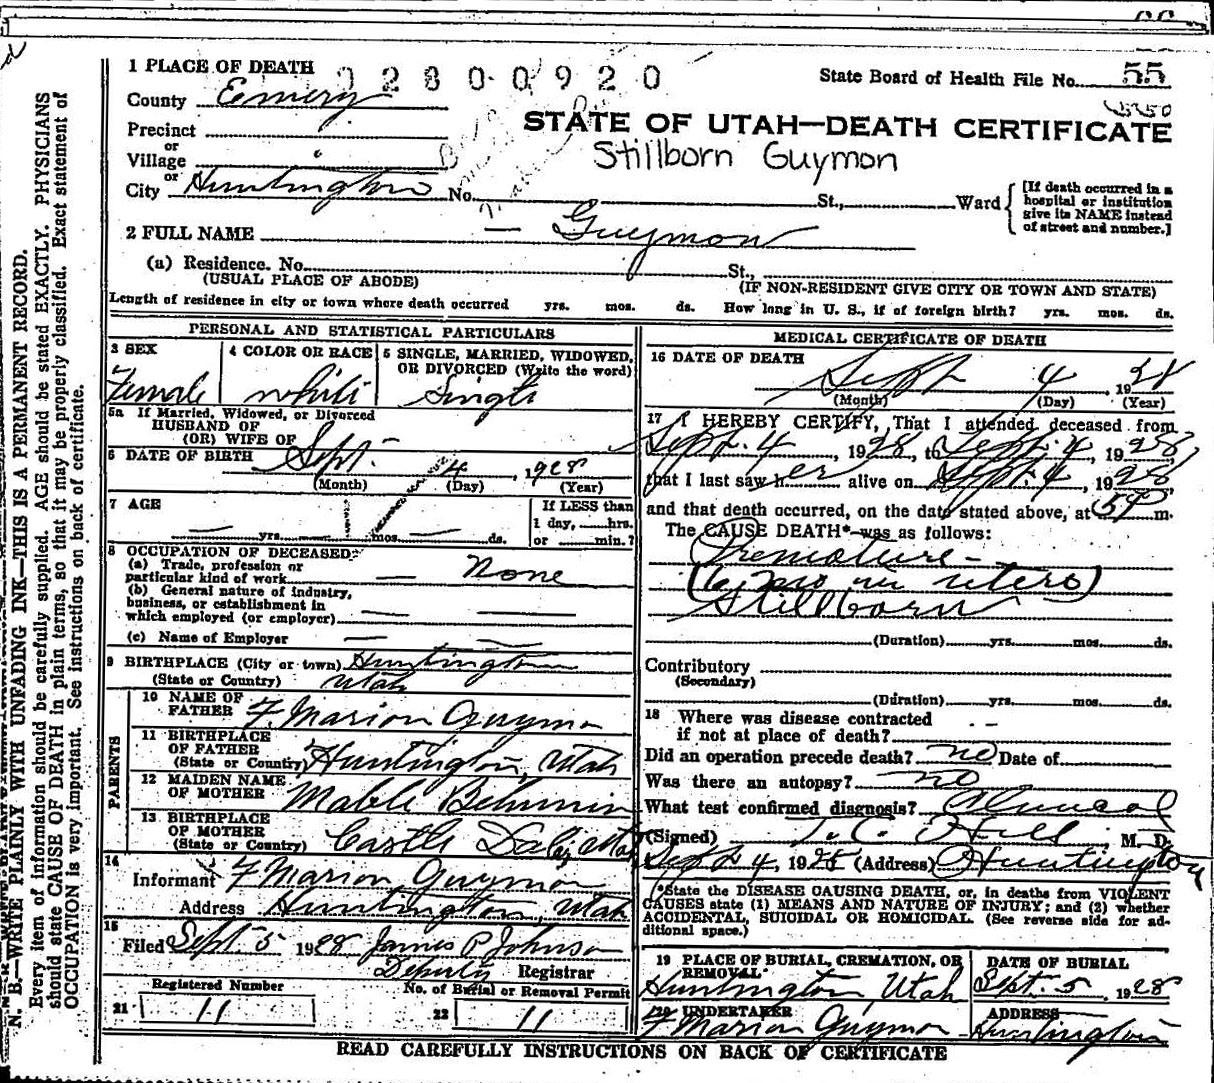 55
5250
0 2 8 0 0 9 2 0
State Board of Health File No. 55
1 PLACE OF DEATH
County Emery
STATE OF UTAH—DEATH CERTIFICATE
Precinct
or
Village
Stillborn Guymon
or
City Huntington No. St., Ward
[If death occurred in a hospital or institution give its NAME instead of street and number.]
2 FULL NAME — Guymon
(a) Residence. No. St.,
(USUAL PLACE OF ABODE) (IF NON-RESIDENT GIVE CITY OR TOWN AND STATE)
Length of residence in city or town where death occurred yrs. mos. ds. How long in U. S., if of foreign birth? yrs. mos. ds.
PERSONAL AND STATISTICAL PARTICULARS
3 SEX
Female
4 COLOR OR RACE
white
5 SINGLE, MARRIED, WIDOWED,
OR DIVORCED (Write the word)
Single
5a If Married, Widowed, or Divorced
HUSBAND OF
(OR) WIFE OF
6 DATE OF BIRTH Sept. 4, 1928
(Month) (Day) (Year)
7 AGE
— yrs. mos. — ds.
If LESS than
1 day, hrs.
or min.?
8 OCCUPATION OF DECEASED:
(a) Trade, profession or
particular kind of work — None
(b) General nature of industry,
business, or establishment in
which employed (or employer) — —
(c) Name of Employer — —
9 BIRTHPLACE (City or town) Huntington
(State or Country) Utah
PARENTS
10 NAME OF
FATHER F. Marion Guymon
11 BIRTHPLACE
OF FATHER
(State or Country) Huntington, Utah
12 MAIDEN NAME
OF MOTHER Mable Behunin
13 BIRTHPLACE
OF MOTHER
(State or Country) Castle Dale, Utah
14
Informant F Marion Guymon
Address Huntington, Utah
15
Filed Sept 5 1928 James P Johnson
Deputy Registrar
Registered Number No. of Burial or Removal Permit
21 11 22 11
MEDICAL CERTIFICATE OF DEATH
16 DATE OF DEATH
Sept 4, 1928
(Month) (Day) (Year)
17 I HEREBY CERTIFY, That I attended deceased from
Sept. 4, 1928, to Sept. 4, 1928,
that I last saw her alive on Sept. 4, 1928,
and that death occurred, on the date stated above, at 5 P m.
The CAUSE DEATH* was as follows:
Premature—
(6 mo in utero)
Stillborn
(Duration) yrs. mos. ds.
Contributory
(Secondary)
(Duration) yrs. mos. ds.
18 Where was disease contracted
if not at place of death? - -
Did an operation precede death? no Date of
Was there an autopsy? no
What test confirmed diagnosis? Clinical
(Signed) T. C. Hill M. D.
Sept 4, 1928 (Address) Huntington
(*State the DISEASE CAUSING DEATH, or, in deaths from VIOLENT
CAUSES state (1) MEANS AND NATURE OF INJURY; and (2) whether
ACCIDENTAL, SUICIDAL OR HOMICIDAL. (See reverse side for ad-
ditional space.)
19 PLACE OF BURIAL, CREMATION, OR
REMOVAL
Huntington, Utah
DATE OF BURIAL
Sept. 5, 1928
20 UNDERTAKER
F Marion Guymon
ADDRESS
Huntington
READ CAREFULLY INSTRUCTIONS ON BACK OF CERTIFICATE
N. B.—WRITE PLAINLY WITH UNFADING INK—THIS IS A PERMANENT RECORD.
Every item of information should be carefully supplied. AGE should be stated EXACTLY. PHYSICIANS
should state CAUSE OF DEATH in plain terms, so that it may be properly classified. Exact statement of
OCCUPATION is very important. See instructions on back of certificate.